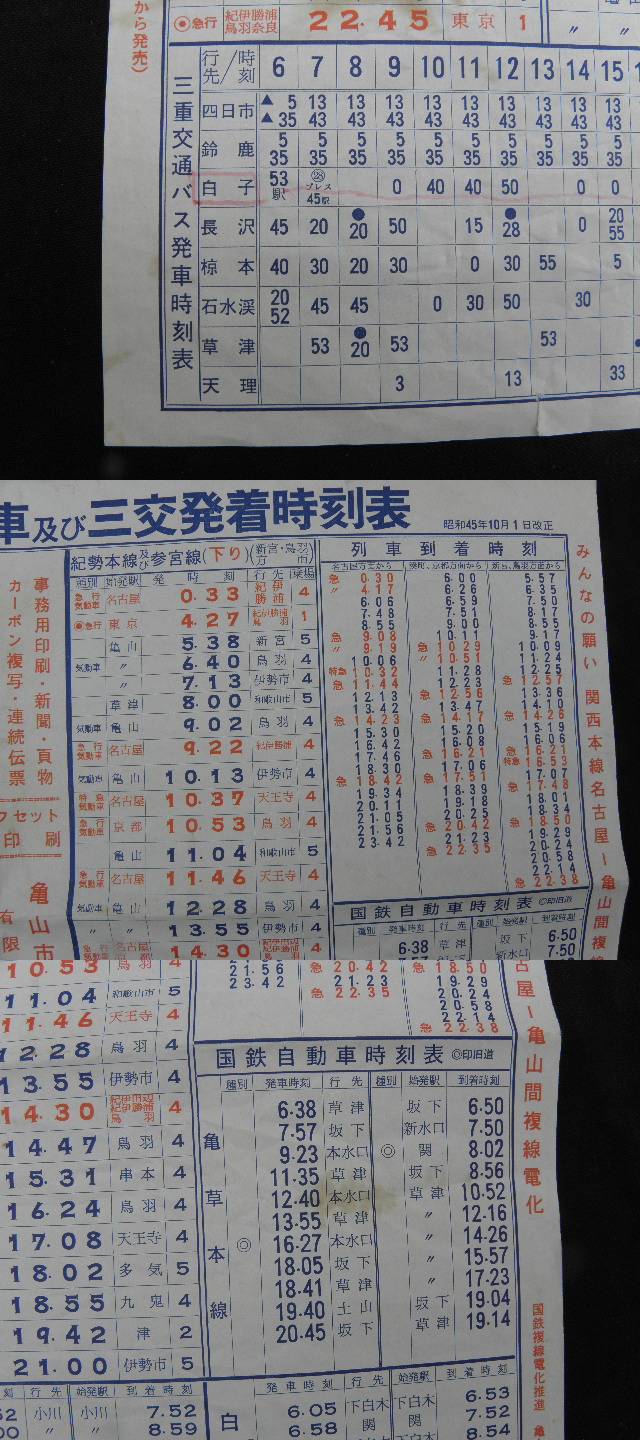 から発売)
◉急行 紀伊勝浦 鳥羽奈良 22.45 東京 1
三重交通バス発車時刻表
行先/時刻 6 7 8 9 10 11 12 13 14 15
四日市 ▲5 13 13 13 13 13 13 13 13 13
▲35 43 43 43 43 43 43 43 43 43
鈴鹿 5 5 5 5 5 5 5 5 5 5
35 35 35 35 35 35 35 35 35 35
白子 53駅 プレス 45駅 0 40 40 50 0 0
長沢 45 20 ●20 50 15 ●28 0 20 55
椋本 40 30 20 30 0 30 55 5
石水渓 20 52 45 45 0 30 50 30
草津 53 ●20 53 53
天理 3 13 33
車及び三交発着時刻表
昭和45年10月1日改正
事務用印刷・新聞・頁物
カーボン複写・連続伝票
フセット
印刷
亀山市
有限
みんなの願い 関西本線名古屋ー亀山間複線
紀勝本線及び参宮線(下り)(新宮・鳥羽方市)
種別 始発駅 発時刻 行先 乗場
急行気動車 名古屋 0.33 紀伊勝浦 4
◉急行 東京 4.27 紀伊勝浦鳥羽 1
亀山 5.38 新宮 5
気動車 〃 6.40 鳥羽 4
〃 7.13 伊勢市 4
草津 8.00 和歌山市 5
気動車 亀山 9.02 鳥羽 4
急行気動車 名古屋 9.22 紀伊勝浦 4
気動車 亀山 10.13 伊勢市 4
特急気動車 名古屋 10.37 天王寺 4
急行気動車 京都 10.53 鳥羽 4
亀山 11.04 和歌山市 5
急行気動車 名古屋 11.46 天王寺 4
気動車 亀山 12.28 鳥羽 4
〃 〃 13.55 伊勢市 4
急行気動車 名古屋 14.30 4
列車到着時刻
名古屋方面から 湊町、京都方面から 新宮、鳥羽方面から
急 0.30 6.00 5.57
〃 4.17 6.26 6.35
6.06 6.59 7.50
7.48 7.51 8.17
8.55 9.00 8.55
急 9.08 10.11 9.17
〃 9.19 急 10.29 10.09
10.06 〃 10.51 11.24
特急 10.32 11.28 12.25
急 11.44 12.23 急 12.57
12.13 急 12.56 13.36
13.42 13.47 14.10
急 14.23 急 14.17 急 14.26
15.30 15.20 15.19
16.42 16.08 16.06
17.46 急 16.21 急 16.21
18.30 17.06 特急 16.53
急 18.42 急 17.51 17.07
19.34 18.39 急 17.48
20.11 19.18 18.01
21.05 20.25 18.34
21.56 急 20.42 急 18.50
23.42 21.23 19.29
急 22.35 20.24
20.58
22.14
急 22.38
国鉄自動車時刻表 ◎印旧道
種別 発車時刻 行先 種別 始発駅 到着時刻
6.38 草津 坂下 6.50
7.50
10.53 鳥羽 4
11.04 和歌山市 5
11.46 天王寺 4
12.28 鳥羽 4
13.55 伊勢市 4
14.30 紀伊田辺 紀伊勝浦 鳥羽 4
14.47 鳥羽 4
15.31 串本 4
16.24 鳥羽 4
17.08 天王寺 4
18.02 多気 5
18.55 九鬼 4
19.42 津 2
21.00 伊勢市 5
21.56 急 20.42 急 18.50
23.42 21.23 19.29
急 22.35 20.24
20.58
22.14
急 22.38
国鉄自動車時刻表 ◎印旧道
種別 発車時刻 行先 種別 始発駅 到着時刻
亀草本線
6.38 草津 坂下 6.50
7.57 坂下 新水口 7.50
9.23 本水口 ◎ 関 8.02
11.35 草津 坂下 8.56
12.40 本水口 草津 10.52
13.55 草津 〃 12.16
◎ 16.27 本水口 〃 14.26
18.05 坂下 〃 15.57
18.41 草津 〃 17.23
19.40 土山 坂下 19.04
20.45 坂下 草津 19.14
古屋ー亀山間複線電化
国鉄複線電化推進 亀
刻 行先 始発駅 到着時刻
52 小川 小川 7.52
00 〃 〃 8.59
白
発車時刻 行先 始発駅 到着時刻
6.05 下白木 下白木 6.53
6.58 関 関 7.52
8.58 下白木 下白木 8.54